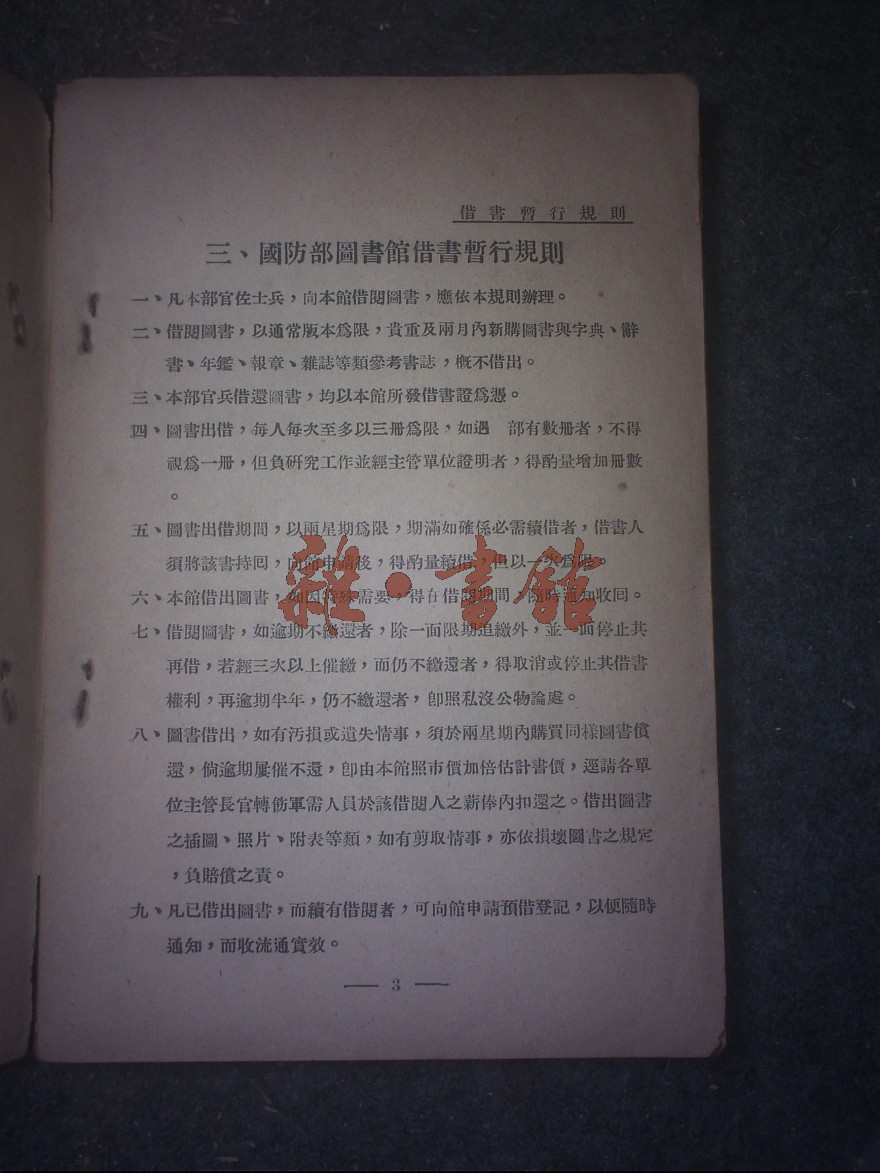 借書暫行規則
三、國防部圖書館借書暫行規則
一、凡本部官佐士兵，向本館借閱圖書，應依本規則辦理。
二、借閱圖書，以通常版本爲限，貴重及兩月內新購圖書與字典、辭
書、年鑑、報章、雜誌等類參考書誌，槪不借出。
三、本部官兵借還圖書，均以本館所發借書證爲憑。
四、圖書出借，每人每次至多以三冊爲限，如遇　部有數冊者，不得
視爲一冊，但負硏究工作並經主管單位證明者，得酌量增加冊數
。
五、圖書出借期間，以兩星期爲限，期滿如確係必需續借者，借書人
須將該書持囘，向館申請後，得酌量續借，但以一次爲限。
六、本館借出圖書，如因特殊需要，得在借閱期間，隨時通知收囘。
七、借閱圖書，如逾期不繳還者，除一面限期追繳外，並一面停止其
再借，若經三次以上催繳，而仍不繳還者，得取消或停止其借書
權利，再逾期半年，仍不繳還者，卽照私沒公物論處。
八、圖書借出，如有汚損或遺失情事，須於兩星期內購買同樣圖書償
還，倘逾期屢催不還，卽由本館照市價加倍估計書價，逕請各單
位主管長官轉飭軍需人員於該借閱人之薪俸內扣還之。借出圖書
之插圖、照片、附表等類，如有剪取情事，亦依損壞圖書之規定
，負賠償之責。
九、凡已借出圖書，而續有借閱者，可向館申請預借登記，以便隨時
通知，而收流通實效。
— 3 —
雜·書館